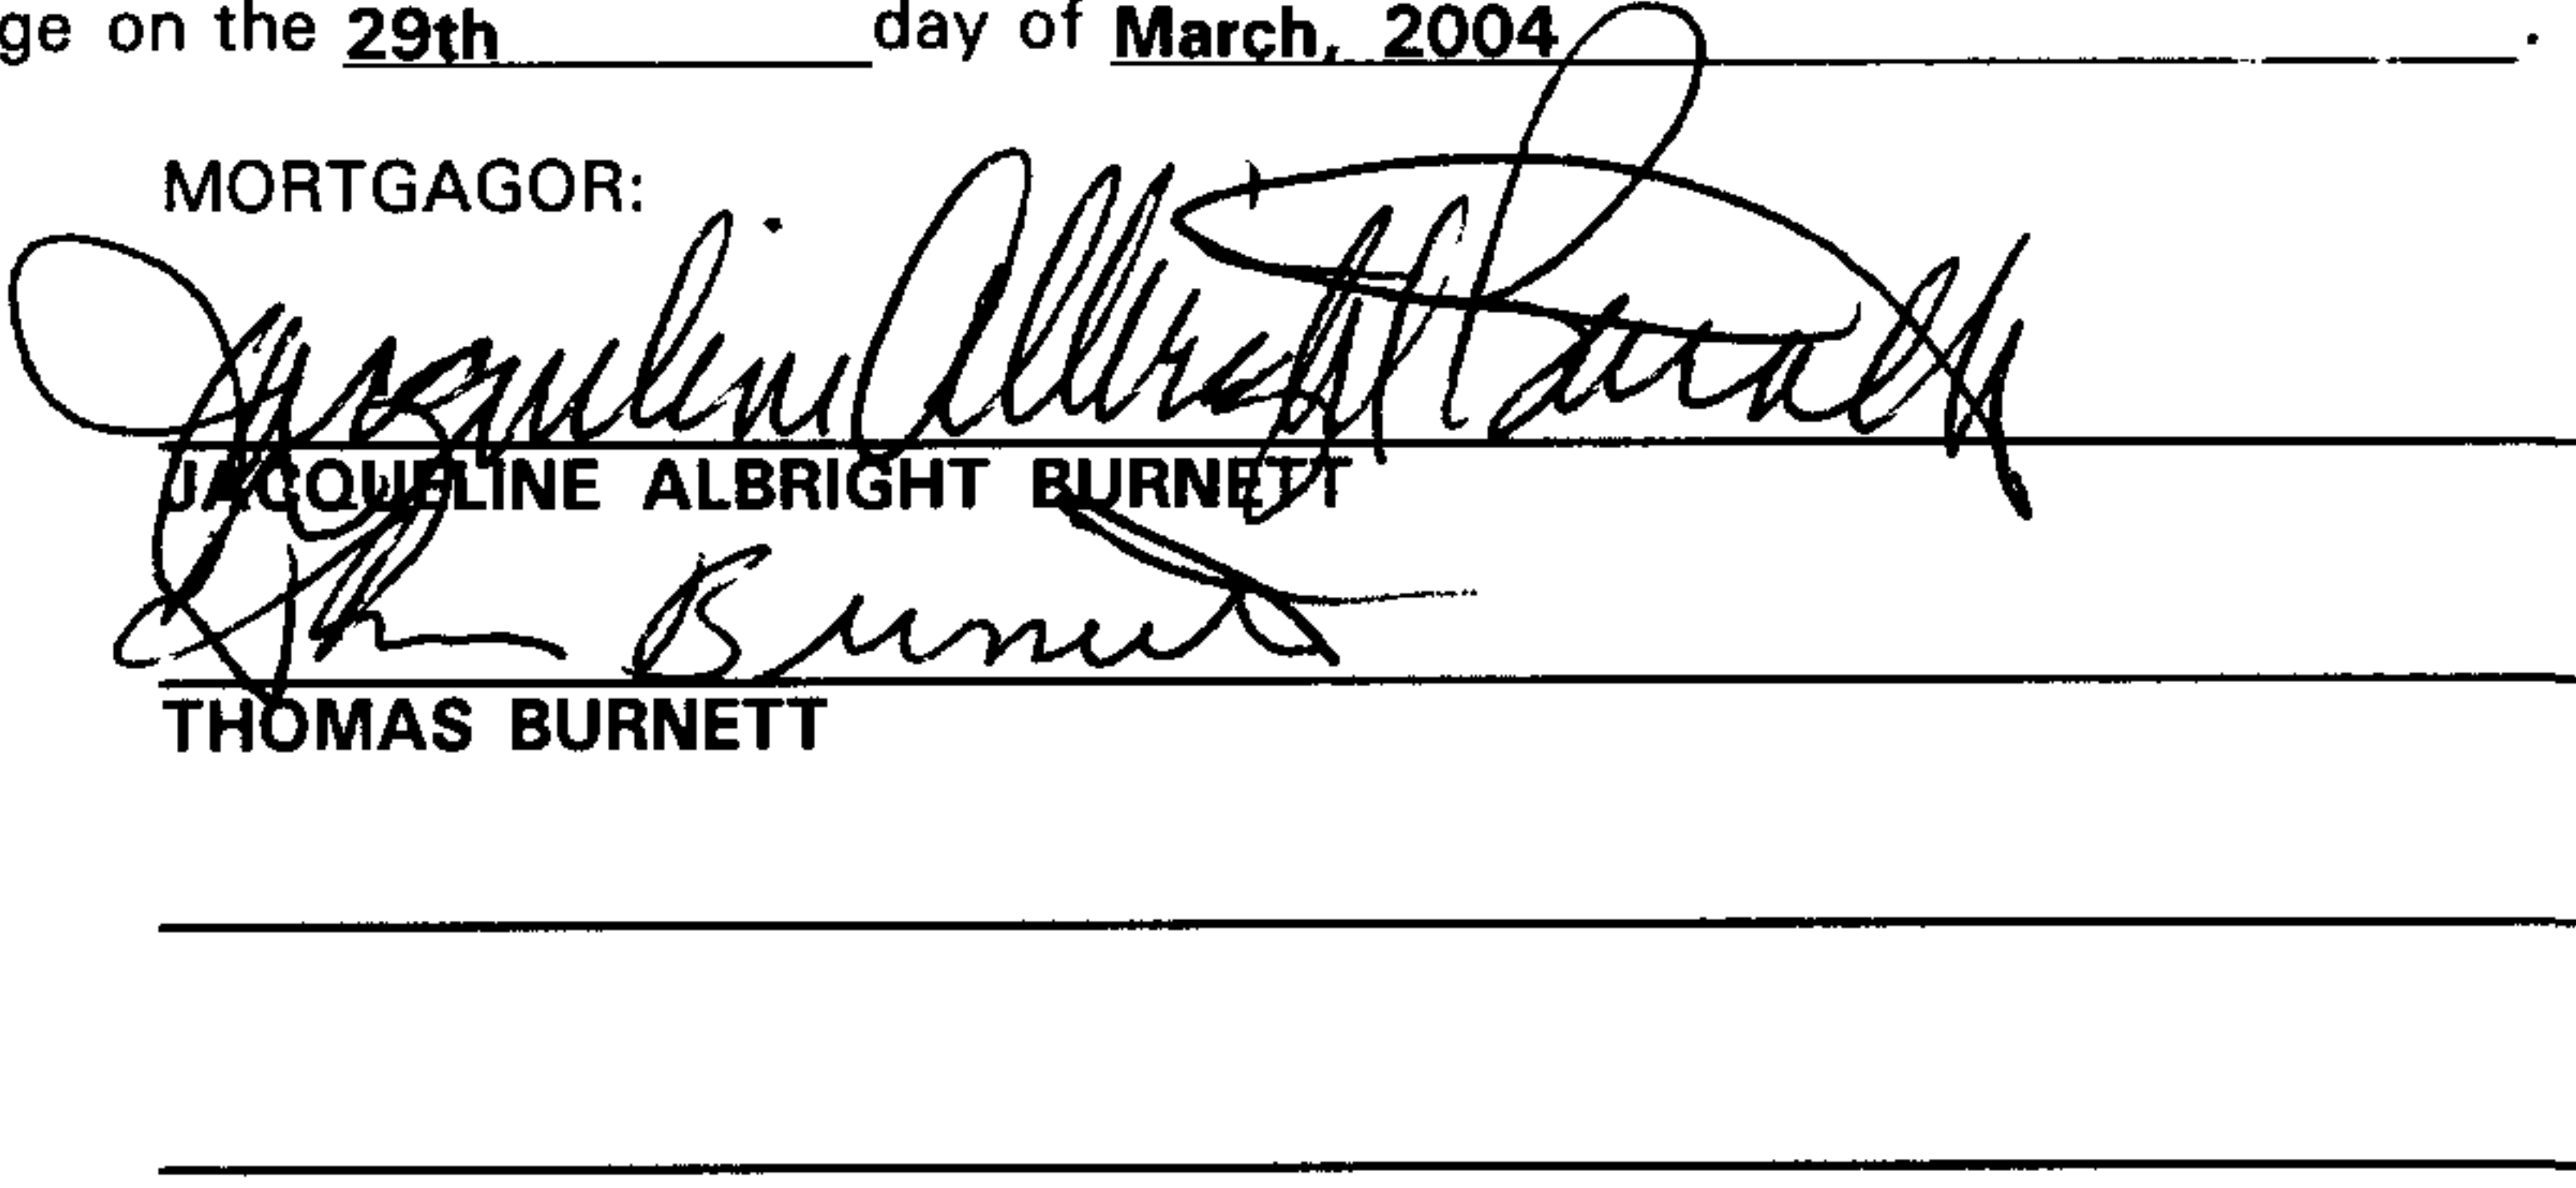 ge on the 29th day of March, 2004.
MORTGAGOR:
Jacqueline Albright Burnett
JACQUELINE ALBRIGHT BURNETT
Thomas Burnett
THOMAS BURNETT